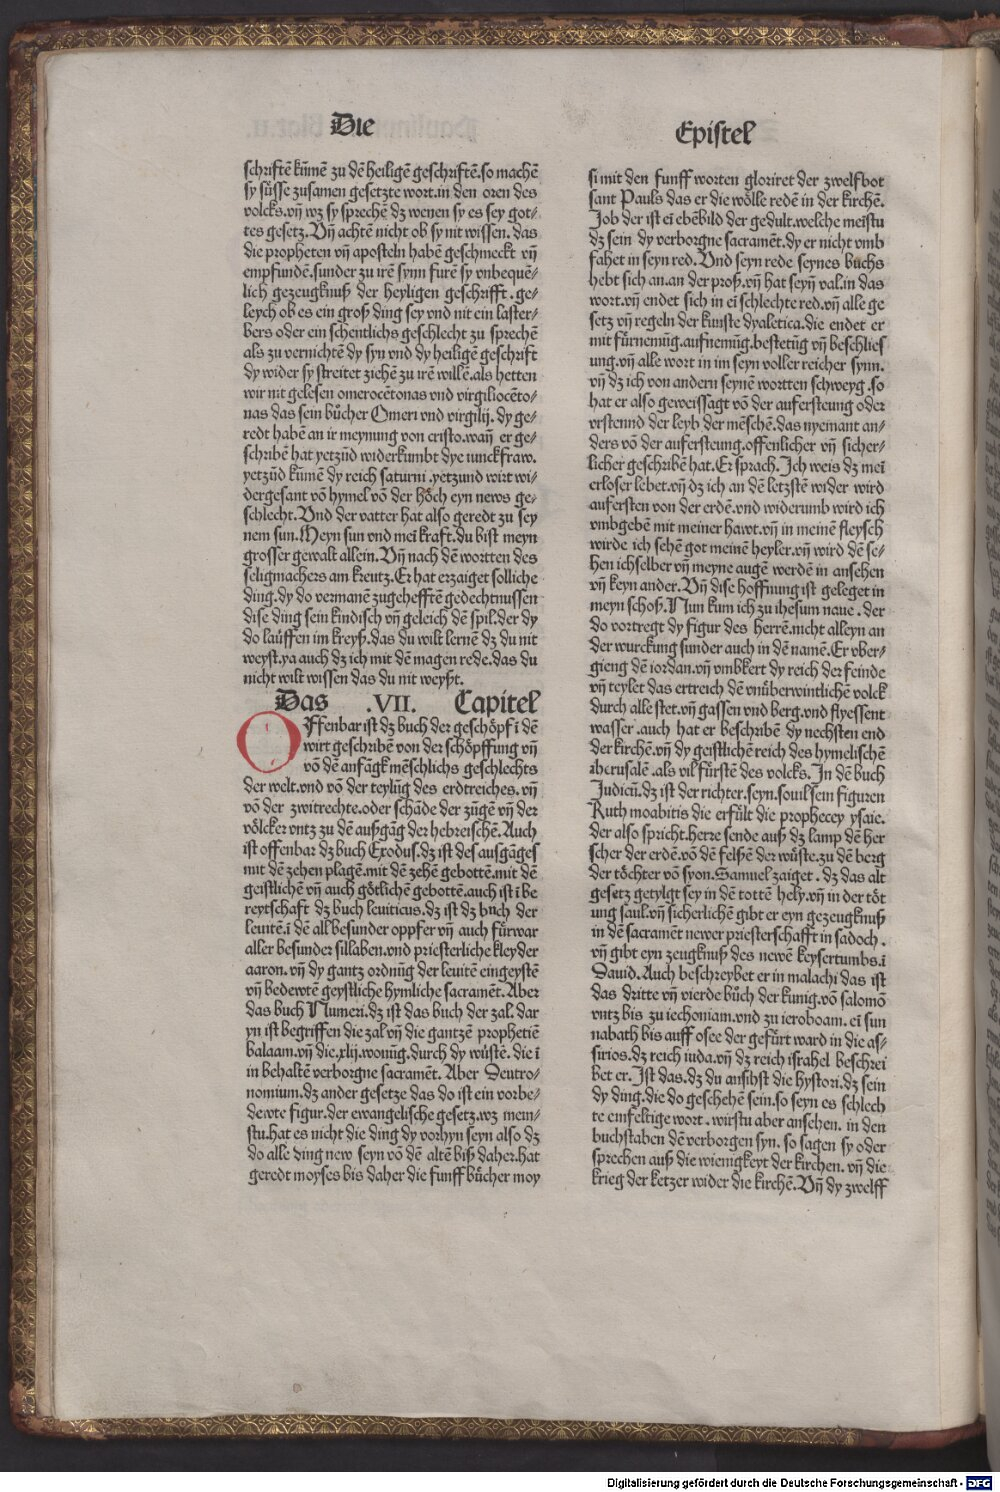 Die
schriftē kūmē zu dē heiligē geschriftē.so machē
sy süsse zusamen gesetzte wort.in den oren des
volcks.vñ wz sy sprechē dz wenen sy es sey got⸗
tes gesetz.Vñ achtē nicht ob sy nit wissen. das
die propheten vñ aposteln habē geschmeckt vñ
empfundē.sunder zu irē synn furē sy vnbequē⸗
lich gezeugknuß der heyligen geschrifft.ge⸗
leych ob es ein groß ding sey vnd nit ein laster⸗
bers oder ein schentlichs geschlecht zu sprechē
als zu vernichtē dy syn vnd dy heiligē geschrift
dy wider sy streitet ziehē zu irē willē.als hetten
wir nit gelesen omerocētonas vnd virgiliocēto⸗
nas das sein bücher Omeri vnd virgilij. dy ge⸗
redt habē an ir meynung von cristo.wañ er ge⸗
schribē hat yetzūd widerkumbt dye iunckfraw.
yetzūd kūmē dy reich saturni.yetzund wirt wi⸗
dergesant vō hymel vō der höch eyn news ge⸗
schlecht.Vnd der vatter hat also geredt zu sey
nem sun.Meyn sun vnd mei kraft.du bist meyn
grosser gewalt allein.Vñ nach dē wortten des
seligmachers am kreutz.Er hat erzaiget solliche
ding.dy do vermanē zugehefftē gedechtnussen
dise ding sein kindisch vñ geleich dē spil.der dy
do lauffen im kreyß.das du wilt lernē dz du nit
weyst.ya auch dz ich mit dē magen rede.das du
nicht wilt wissen das du nit weyst.
Das .VII. Capitel
Offenbar ist dz buch der geschöpf ī dē
wirt geschribē von der schöpffung vñ
vō dē anfāgk mēschlichs geschlechts
der welt.vnd vō der teylūg des erdtreiches.vñ
vō der zwitrechte.oder schāde der zūgē vñ der
völcker vntz zu dē außgāg der hebreischē.Auch
ist offenbar dz buch Exodus.dz ist des ausgāges
mit dē zehen plagē.mit dē zehē gebottē.mit dē
geistlichē vñ auch götlichē gebottē.auch ist ī be
reytschaft dz buch leuiticus.dz ist dz buch der
leuitē.ī dē all besunder oppfer vñ auch fürwar
aller besunder sillaben.vnd priesterliche kleyder
aaron.vñ dy gantz ordnūg der leuitē eingeystē
vñ bedewtē geystliche hymliche sacramēt.Aber
das buch Numeri.dz ist das buch der zal.dar
yn ist begriffen die zal vñ die gantzē prophetiē
balaam.vñ die.xlij.wonūg.durch dy wüstē. die ī
in behaltē verborgne sacramēt. Aber Deutro⸗
nomium.dz ander gesetze das do ist ein vorbe⸗
dewte figur.der ewangelische gesetz.wz mein⸗
stu.hat es nicht die ding dy vorhyn seyn also dz
do alle ding new seyn vō dē altē biß daher.hat
geredt moyses bis daher die funff bücher moy
Epistel
si mit den funff worten gloriret der zwelfbot
sant Pauls das er die wölle redē in der kirchē.
Job der ist ei ebēbild der gedult.welche meistu
dz sein dy verborgne sacramēt.dy er nicht vmb
fahet in seyn red.Vnd seyn rede seynes buchs
hebt sich an.an der proß.vñ hat seyñ val.in das
wort.vñ endet sich in ei schlechte red.vñ alle ge
setz vñ regeln der kunste dyaletica.die endet er
mit fürnemūg.aufnemūg.bestetūg vñ beschlies
ung.vñ alle wort in im seyn voller reicher synn.
vñ dz ich von andern seynē wortten schweyg.so
hat er also geweissagt vō der aufersteung oder
vrstennd der leyb der mēschē.das nyemant an⸗
ders vō der auferstēung.offenlicher vñ sicher⸗
licher geschribē hat.Er sprach.Ich weis dz mei
erloser lebet.vñ dz ich an dē letzstē wider wird
aufersten von der erdē.vnd widerumb wird ich
vmbgebē mit meiner hawt.vñ in meinē fleysch
wirde ich sehē got meinē heyler.vñ wird dē se⸗
hen ichselber vñ meyne augē werdē in ansehen
vñ keyn ander.Vñ dise hoffnung ist geleget in
meyn schoß.Nun kum ich zu ihesum naue.der
do vortregt dy figur des herrē.nicht alleyn an
der wurckung sunder auch in dē namē.Er vber⸗
gieng dē iordan.vñ vmbkert dy reich der feinde
vñ teylet das ertreich dē vnüberwintlichē volck
durch alle stet.vñ gassen vnd berg.vnd flyessent
wasser.auch hat er beschribē dy nechsten end
der kirchē.vñ dy geistlichē reich des hymelischē
iherusalē.als vil fürstē des volcks.In dē buch
Judicū.dz ist der richter.seyn.souil sein figuren
Ruth moabitis die erfült die prophecey ysaie.
der also spricht.herre sende auß dz lamp dē her
scher der erdē.vō dē felsē der wüste.zu dē berg
der töchter vō syon.Samuel zaiget.dz das alt
gesetz getylgt sey in dē tottē hely.vñ in der töt
ung saul.vñ sicherlichē gibt er eyn gezeugknuß
in dē sacramēt newer priesterschafft in sadoch.
vñ gibt eyn zeugknuß des newē keysertumbs.ī
Dauid.Auch beschreybet er in malachi das ist
das dritte vñ vierde büch der kunig.vō salomō
vntz bis zu iechoniam.vnd zu ieroboam.ei sun
nabath bis auff osee der gefürt ward in die as⸗
sirios.dz reich iuda.vñ dz reich israhel beschrei
bet er.Ist das.dz du ansihst die hystori.dz sein
dy ding.die do geschehē sein.so seyn es schlech
te einfeltige wort.wirstu aber ansehen. in den
buchstaben dē verborgen syn. so sagen sy oder
sprechen auß die wienigkeyt der kirchen. vñ die
krieg der ketzer wider die kirchē.Vñ dy zwelff
Digitalisierung gefördert durch die Deutsche Forschungsgemeinschaft - DFG